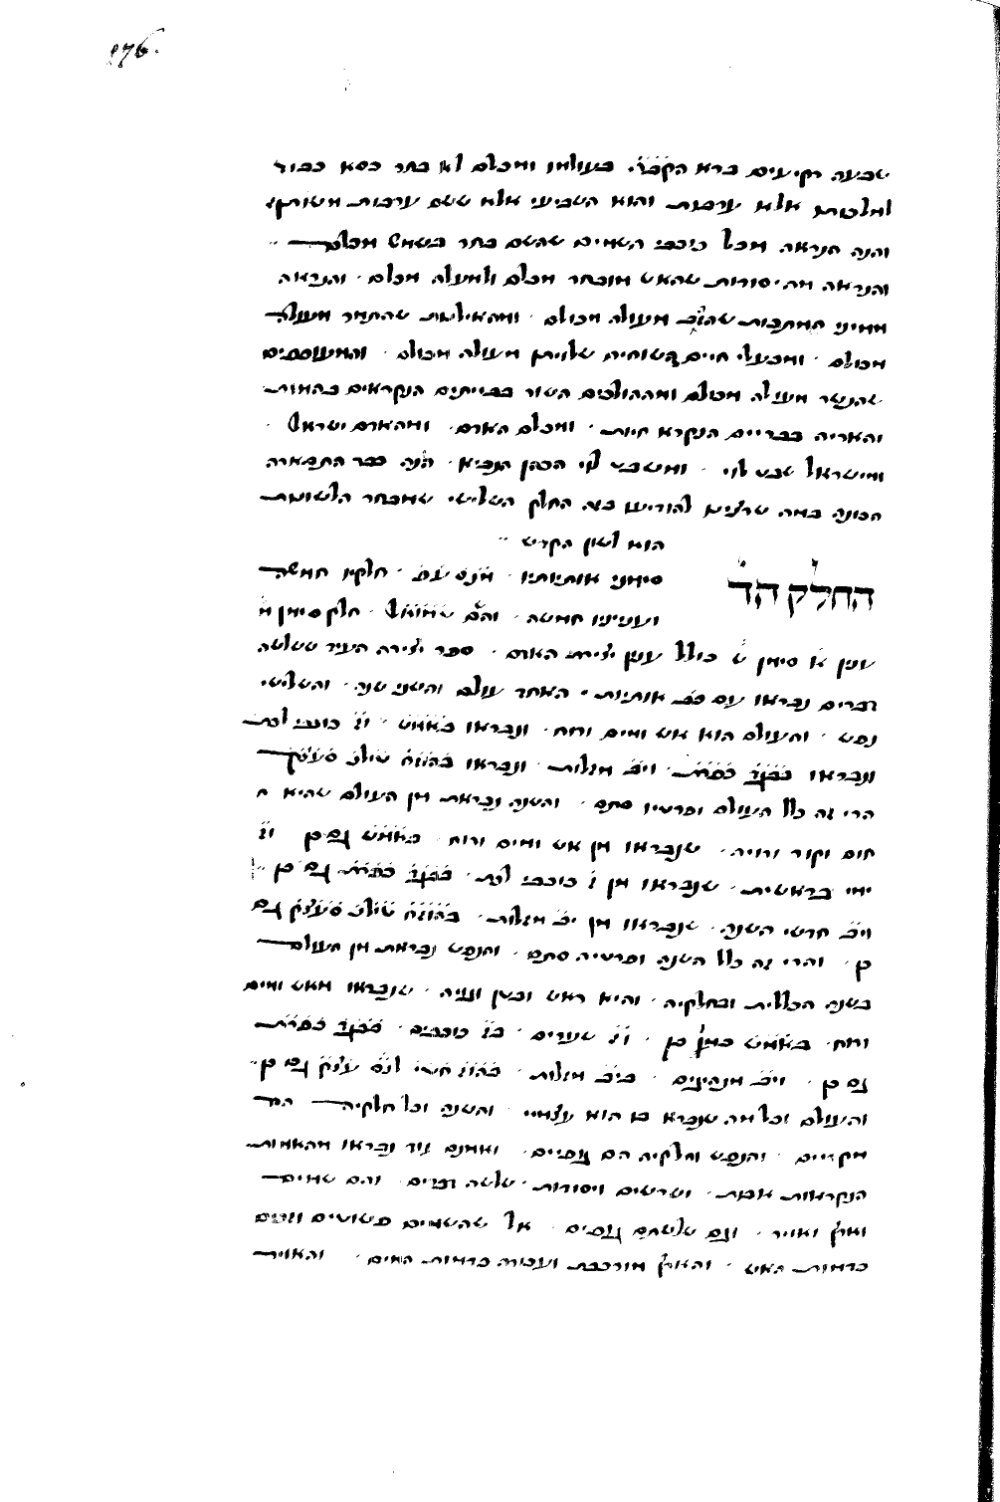 176.
שבעה רקיעים ברא הקב״ה בעולמו ומכלם לא בחר כסא כבוד
למלכותו אלא ערבות והוא השביעי אלא ששם ערבות משותף
והנה הנראה מכל כוכבי השמים שהשם בחר בשמש מכלם
והנראה מהיסודות שהאש מובחר מכלם ולמעלה מכלם והנראה
ממיני המתכות שהזהב מעולה מכולם ומהאילנות שהתמר מעולה
מכולם ומבעלי חיים השוחים שלויתן מעולה מכולם והמעופפים
שהנשר מעולה מכולם ומההולכים השור בבייתיים הנקראים בהמות
והאריה בבריים הנקרא חיות ומכלם האדם ומהאדם ישראל
ומישראל שבט לוי ומשבט לוי הכהן הנביא הנה כבר התבארה
הכונה במה שרצינו להודיעו בזה החלק השלישי שמבחר הלשונות
הוא לשון הקדש
החלק הד׳
סימני אותיותיו חלקיו חמשה
ועניניו חמשה והם חלק סימן
ענין סימן כולל ענין יצירת האדם ספר יצירה העיד ששלשה
דברים נבראו עם כ״ב אותיות האחד עולם והשני שנה והשלישי
נפש והעולם הוא אש ומים ורוח ונבראו באמ״ש וז׳ כוכבי לכת
ונבראו בבג״ד כפר״ת וי״ב מזלות ונבראו בהו״ז ח״ט יל״נ סעצ״ק
הרי זה כלל העולם ופרטיו סתם והשנה נבראת מן העולם שהיא
חום וקור ורויה שנבראו מן אש ומים ורוח באמ״ש גם כן וז׳
ימי בראשית שנבראו מן ז׳ כוכבי לכת בבג״ד כפר״ת גם כן
וי״ב חדשי השנה שנבראו מן י״ב מזלות בהו״ז ח״ט יל״נ סעצ״ק גם
כן והרי זה כלל השנה ופרטיה סתם והנפש נבראת מן העולם
בשנה הכללית ובחלקיה והיא ראש ובטן וגויה שנבראו מאש ומים
ורוח באמ״ש כמו כן וז׳ שערים בז׳ כוכבים בבג״ד כפר״ת
גם כן וי״ב מנהיגים בי״ב מזלות בהו״ז חט״י לנ״ס עצ״ק גם כן
והעולם וכל מה שנברא בו הוא עצמיי והשנה וכל חלקיה הם
מקריים והנפש וחלקיה הם גופניים ואמנם עוד נבראו מהאמות
הנקראות אבות ושרשים ויסודות שלשה דברים והם שמים
וארץ ואויר וגם שלשתם גופנים אל שהשמים פשוטים וזכים
כדמות האש והארץ מורכבת ועכורה כדמות המים והאויר